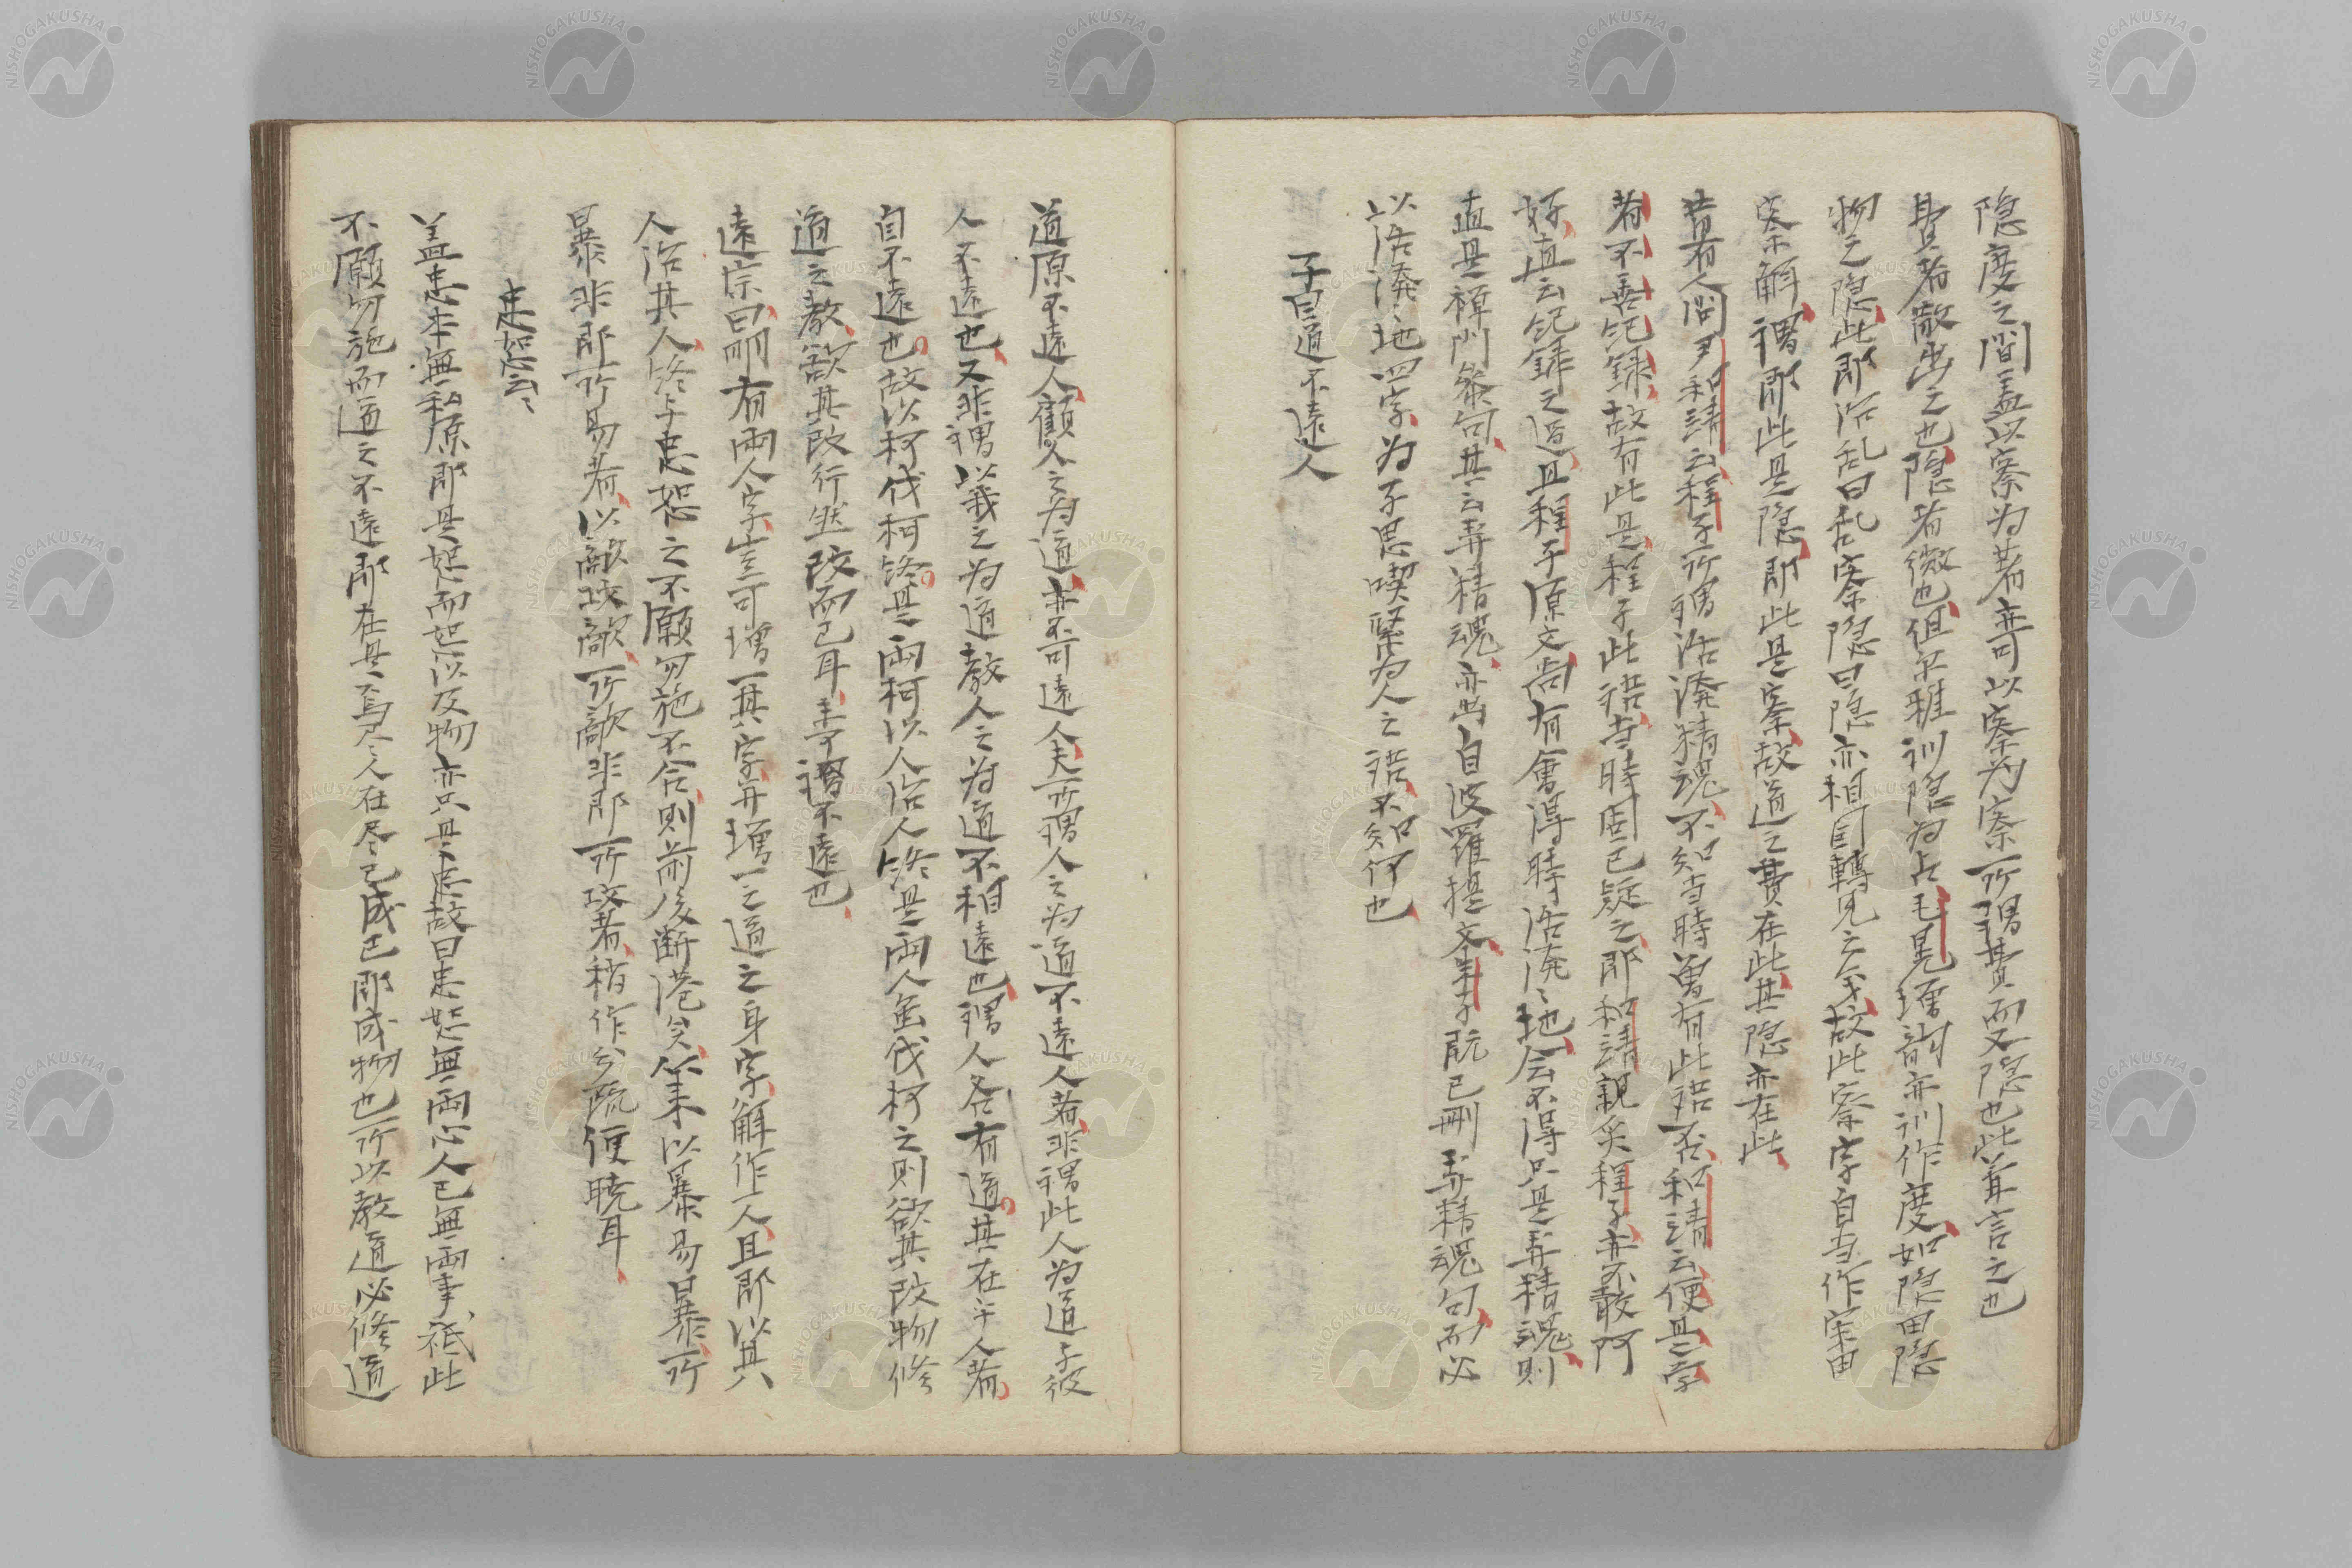 隐度之間盖以察为著亦可以察为察所谓費而又隐也此葢言之也
費者散出之也隐者微也但尔雅训隐为占毛晃增韵亦训作度如隐田隐
物之隐此即治乱曰乱察隐曰隐亦相因轉見之気故此察字自当作察由
察解谓即此是隐即此是察故道之費在此其隐亦在此
昔有人問尹和靖云程子所谓活潑精魂不知当時曽有此语否和靖云便是学
者不善記録故有此是程子此语当時固已疑之即和靖親炙程子亦不敢阿
好直云記録之過且程子原文尚有會得時活潑〻地会不得只是弄精魂則
直是禅門叅句其云弄精魂亦出自波羅提文朱子既已删弄精魂句而必
以活潑地四字为子思喫緊为人之语不知何也
子曰道不遠人
道原不遠人顧人之为道亦不可遠人夫所谓人之为道不遠人者非谓此人为道于彼
人不遠也又非谓以義之为道教人之为道不相遠也谓人各有道其在斗人者
自不遠也故以柯伐柯终是兩柯以人治人终是兩人虽伐柯之则欲其改物修
道之教欲其改行然改而已耳幸谓不遠也
遠宗曰删有兩人字岂可增一其字并增一之道之身字解作一人且即以其
人治其人终与忠恕之不願勿施不合則前後断港矣筆以暴易暴所
暴非即所易者以敵攻敵所敵非即所攻者稍作分疏便暁耳
忠恕云〻
盖忠本無私原即是恕而恕以及物亦只是忠故曰忠恕無兩心人已無兩事祗此
不願勿施而道之不遠即在是焉尽人在尽己成已即成物也所以教道必修道